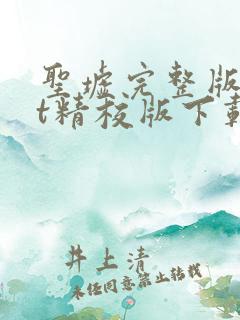 聖墟完整版
t精校版下載
井上清
未经同意禁止转载